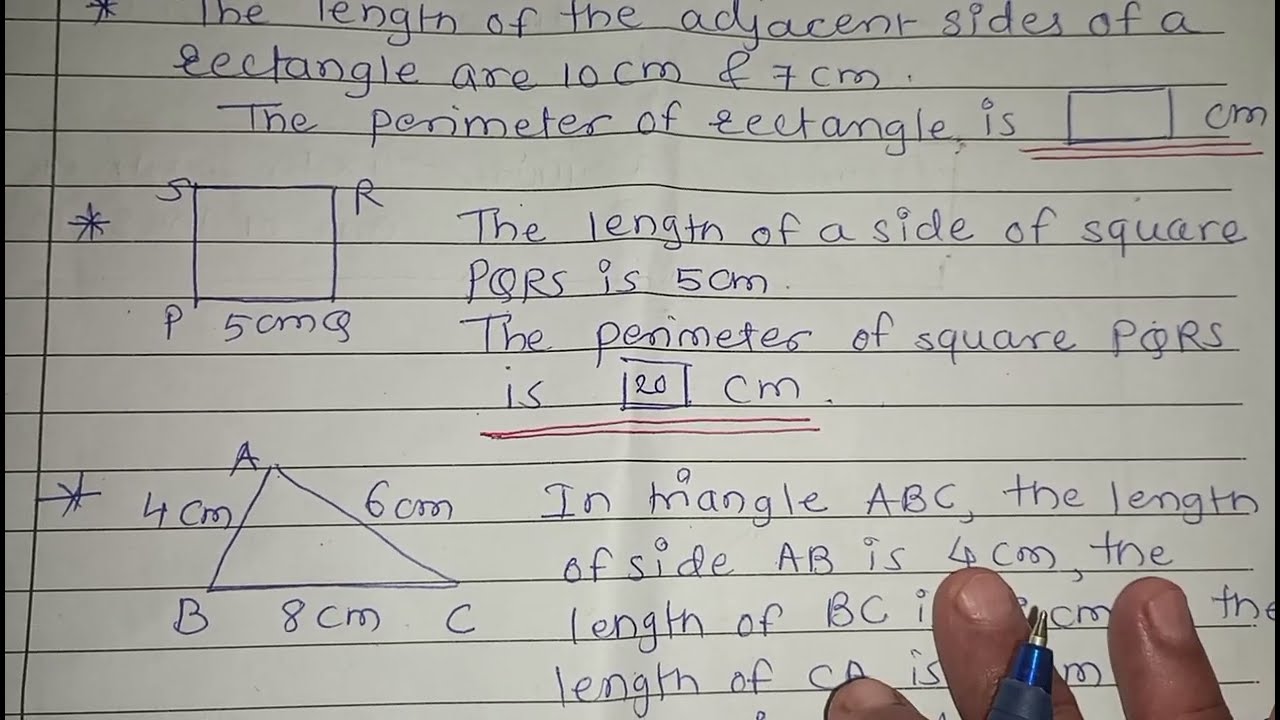 * The length of the adjacent sides of a
rectangle are 10 cm & 7 cm.
The perimeter of rectangle is cm
S R
*
P 5cm Q
The length of a side of square
PQRS is 5cm.
The perimeter of square PQRS
is 20 cm.
A
* 4cm 6cm
B 8cm C
In triangle ABC, the length
of side AB is 4cm, the
length of BC cm the
length of CA is